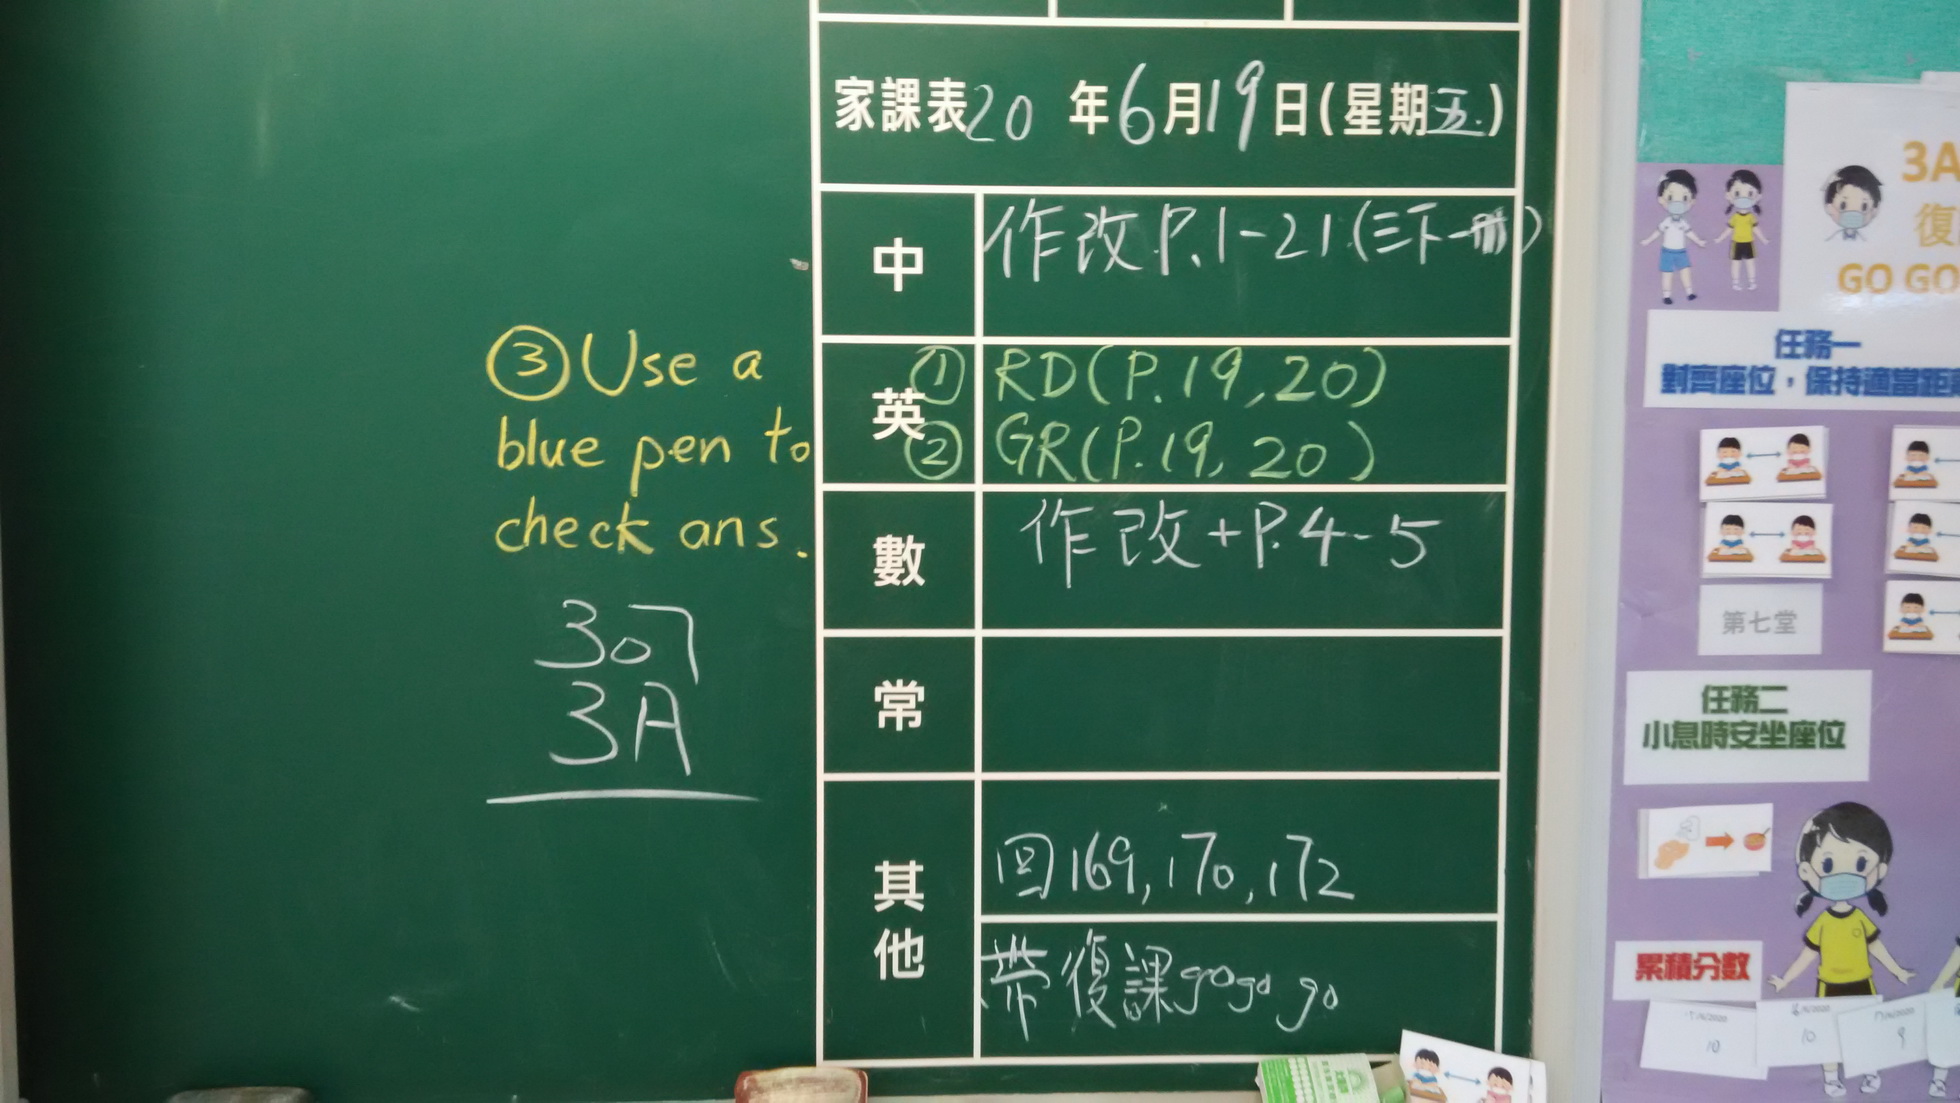 家課表20 年6月19日(星期五.)
中
作改P.1-21(三下一冊)
英
① RD(P.19,20)
② GR(P.19,20)
③ Use a
blue pen to
check ans.
數
作改+P.4-5
常
其他
回169,170,172
帶復課gogo go
307
3A
3A
復
GO GO
任務一
對齊座位，保持適當距
第七堂
任務二
小息時安坐座位
累積分數
10
10
9